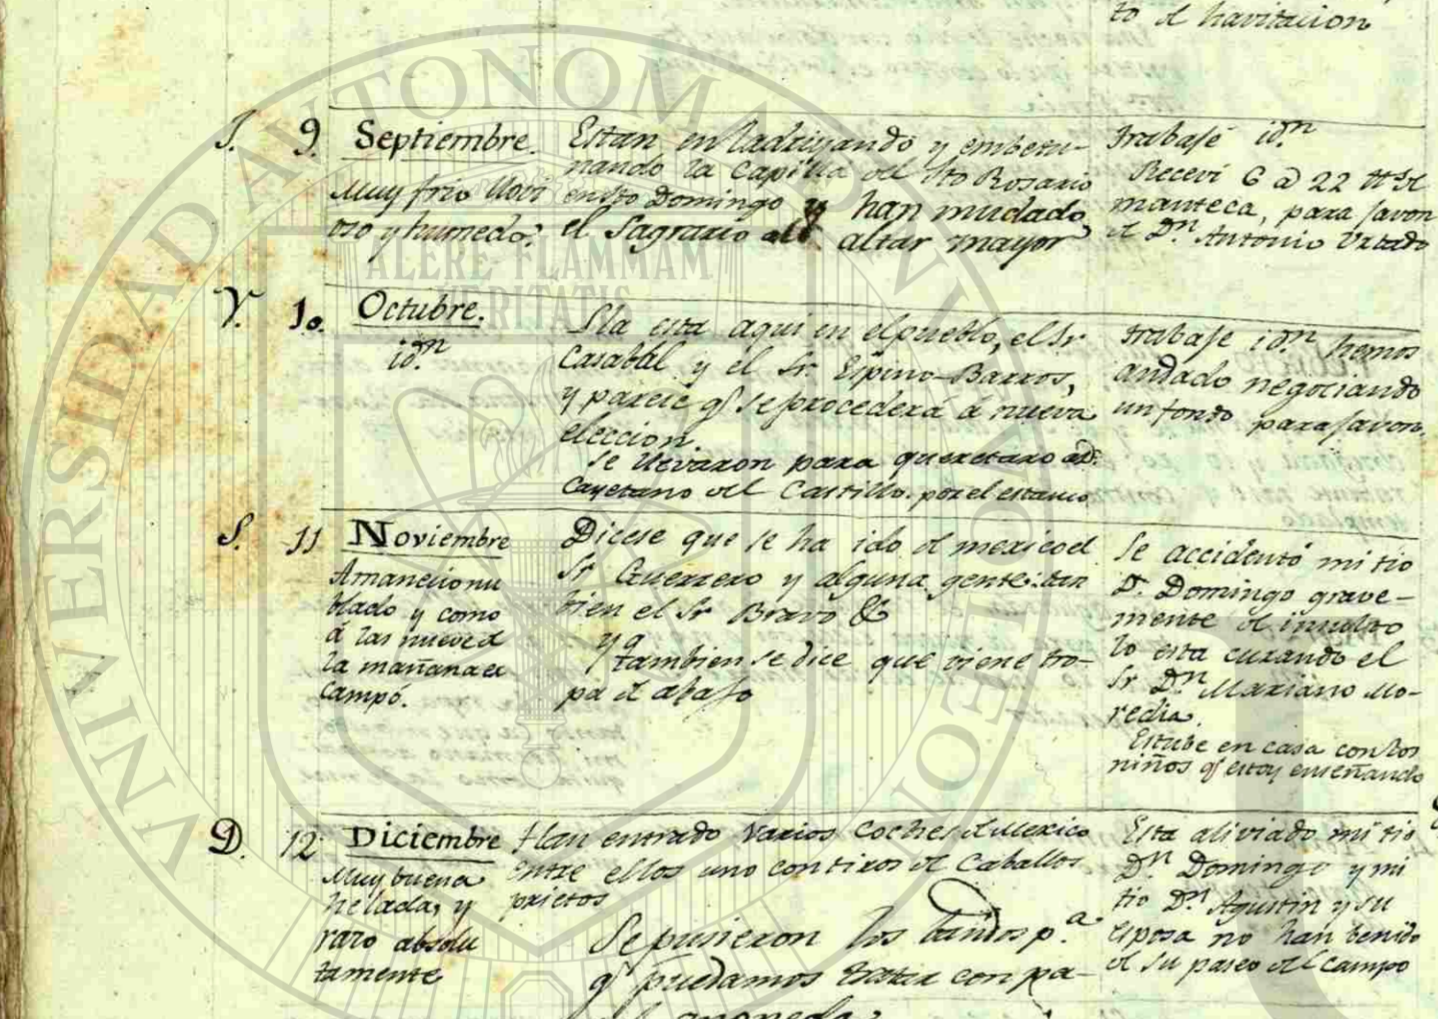 to d havitacion
J. 9. Septiembre.
Muy frio llovi
oso y humedo.
Estan enladriyando y embetu-
nando la Capilla del Sto Rosario
en Sto Domingo y han mudado
el Sagrario al altar mayor
trabajé idn
Receví 6 @ 22 tt d
manteca, para javon
d Dn Antonio Urtado
V. 10. Octubre.
idn
Lla esta aqui en el pueblo, el Sr
Casabal y el Sr Espino-Barros,
y pareie q se procederá á nueva
eleccion.
Se llevaron para queretaro a D.
Cayetano del Castillo por el estanco
trabaje idn hemos
andado negociando
un fondo para javon.
S. 11 Noviembre
Amanecio nu
blado y como
á las nueve d
la mañana es
campó.
Dicese que se ha ido d mexico el
Sr Guerrero y alguna gente: tan
bien el Sr Bravo &
yq
tambien se dice que viene tro-
pa d abajo
Se accidentó mi tio
D. Domingo grave-
mente d insulto
lo esta curando el
Sr Dn Mariano Mo-
redia.
Estube en casa con los
niños q estoy enseñando
D. 12 Diciembre
Muy buena
helada, y
raro absolu
tamente
Han entrado varios Coches d Mexico
entre ellos uno con tiros de Caballos
prietos
Se pusieron los bandos p.a
q puedamos tratar con pa-
moneda
Esta aliviado mi tio
Dn Domingo y mi
tio Dn Agustin y su
esposa no han benido
d su paseo del campo
UNIVERSIDAD AUTONOMA DE NUEVO LEON
ALERE FLAMMAM
VERITATIS